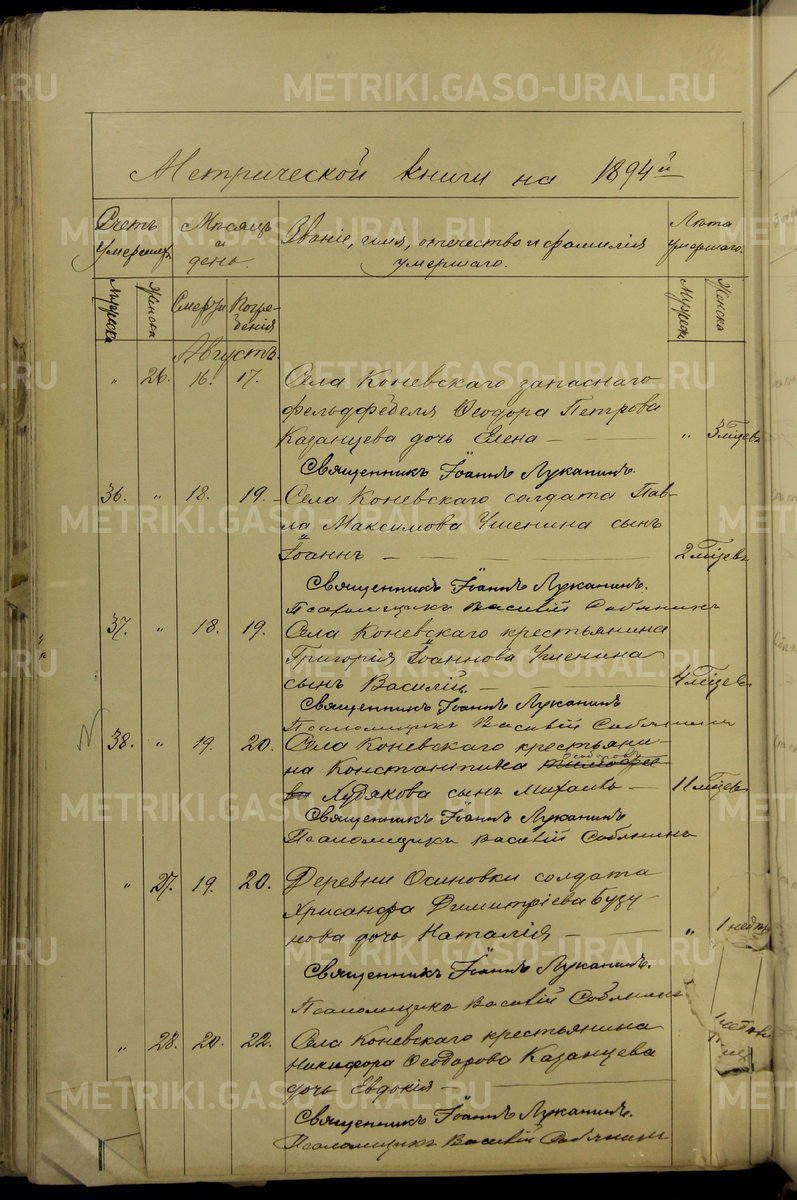 METRIKI.GASO-URAL.RU
Метрической книги на 1894й
Счетъ умершихъ
Мѣсяцъ и день.
Званіе, имя, отчество и фамилія умершаго.
Лѣта умершаго.
Мужска
Женска
Смерти
Погребенія
Мужеска
Женска
Августъ.
" 26. 16. 17. Села Коневскаго запаснаго
фельдфебеля Ѳеодора Петрова
Казанцева дочь Елена — " 3 мѣсяцевъ
Священникъ Іоаннъ Луканинъ.
36. " 18. 19. Села Коневскаго солдата Пав-
ла Максимова Ушенина сынъ
Іоаннъ — 2 мѣсяцевъ
Священникъ Іоаннъ Луканинъ.
Псаломщикъ Василій Собянинъ
37. " 18. 19. Села Коневскаго крестьянина
Григорія Іоаннова Ушенина
сынъ Василій — 4 мѣсяцевъ
Священникъ Іоаннъ Луканинъ
Псаломщикъ Василій Собянинъ
38. " 19. 20. Села Коневскаго крестьяни-
на Константина
Худякова сынъ Михаилъ — 11 мѣсяцевъ
Священникъ Іоаннъ Луканинъ
Псаломщикъ Василій Собянинъ
" 27. 19. 20. Деревни Осиновки солдата
Хрисанфа Димитріева Бузу-
нова дочь Наталія — " 1
Священникъ Іоаннъ Луканинъ.
Псаломщикъ Василій Собянинъ
" 28. 20. 22. Села Коневскаго крестьянина
Никифора Ѳеодорова Казанцева
дочь Евдокія —
Священникъ Іоаннъ Луканинъ.
Псаломщикъ Василій Собянинъ